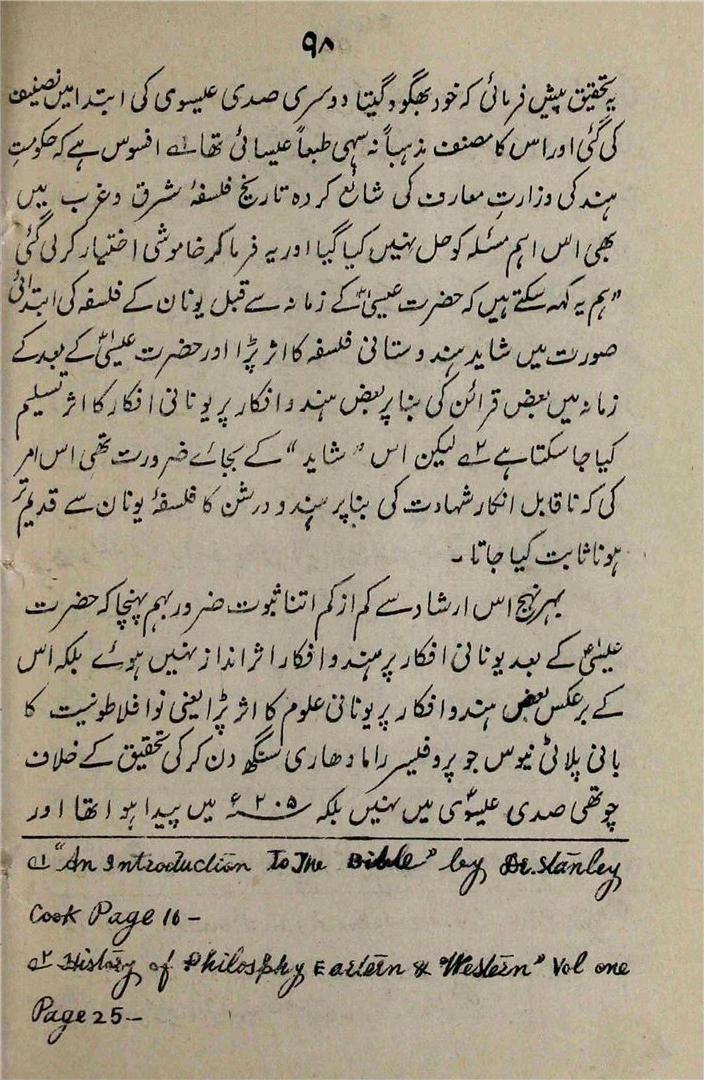 ۹۸
یہ تحقیق پیش فرمائی کہ خود بھگود گیتا دوسری صدی عیسوی کی ابتدا میں تصنیف
کی گئی اور اس کا مصنف مذہباً نہ سہی طبعاً عیسائی تھا ؎۱ افسوس ہے کہ حکومتِ
ہند کی وزارتِ معارف کی شائع کردہ تاریخ فلسفۂ مشرق و غرب میں
بھی اس اہم مسئلہ کو حل نہیں کیا گیا اور یہ فرما کر خاموشی اختیار کر لی گئی
"ہم یہ کہہ سکتے ہیں کہ حضرت عیسیٰؑ کے زمانہ سے قبل یونان کے فلسفہ کی ابتدائی
صورت میں شاید ہندوستانی فلسفہ کا اثر پڑا اور حضرت عیسیٰؑ کے بعد کے
زمانہ میں بعض قرائن کی بنا پر بعض ہندو افکار پر یونانی افکار کا اثر تسلیم
کیا جا سکتا ہے ؎۲ لیکن اس "شاید" کے بجائے ضرورت تھی اس امر
کی کہ ناقابل انکار شہادت کی بنا پر ہندو درشن کا فلسفۂ یونان سے قدیم تر
ہونا ثابت کیا جاتا ۔
بہر نہج اس ارشاد سے کم از کم اتنا ثبوت ضرور بہم پہنچا کہ حضرت
عیسیٰؑ کے بعد یونانی افکار پر ہندو افکار اثر انداز نہیں ہوئے بلکہ اس
کے برعکس بعض ہندو افکار پر یونانی علوم کا اثر پڑا یعنی نو افلاطونیت کا
بانی پلاٹی نیوس جو پروفیسر رامادھاری سنگھ دن کر کی تحقیق کے خلاف
چوتھی صدی عیسویؑ میں نہیں بلکہ ۲۰۵ء میں پیدا ہوا تھا اور
؎۱ "An Introduction To The Bible" by Dr. Stanley
Cook Page 16 –
؎۲ History of Philosphy Eartern & Western" Vol one
Page 25 –